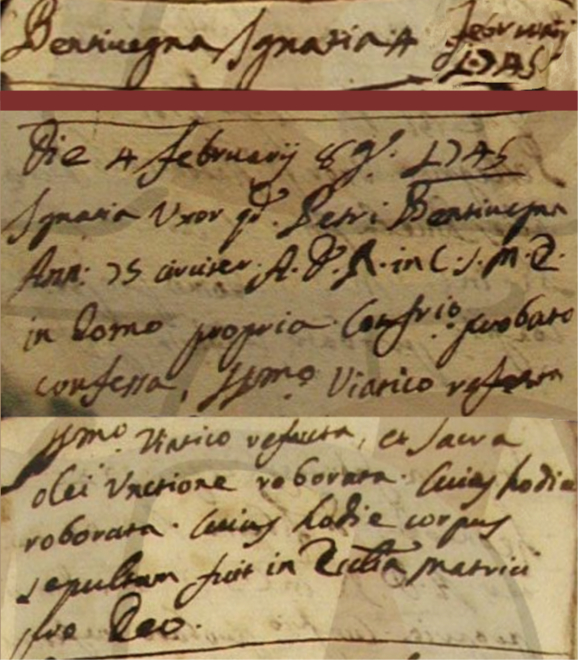 Bentivegna Ignatia 4 februarij
1745
Die 4 februarij 8 Ind. 1745
Ignatia Uxor qd. Petri Bentivegna
Ann: 75 circiter. A. D. R. in C. S. M. E.
in Domo propria. Confrio. probato
confessa, SSmo. Viatico refecta
SSmo. Viatico refecta, et Sacra
olei Unctione roborata. Cuius hodie
roborata. Cuius hodie corpus
sepultum fuit in Ecclia Matrici
pro Deo.